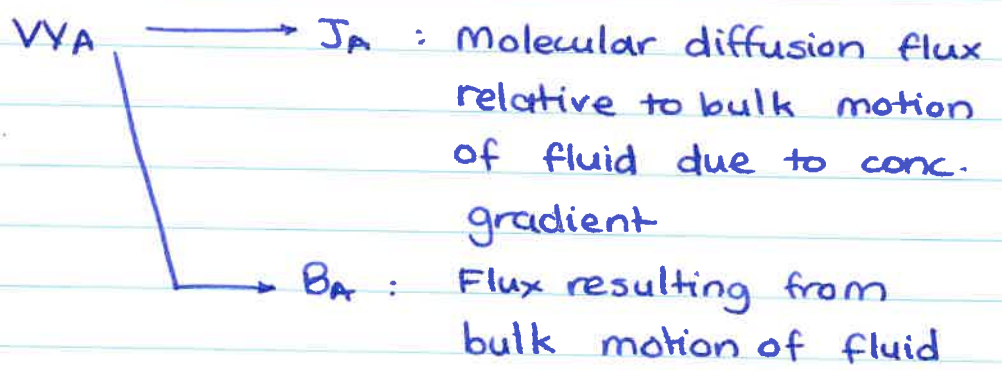 VYA → JA : Molecular diffusion flux
relative to bulk motion
of fluid due to conc.
gradient
→ BA : Flux resulting from
bulk motion of fluid